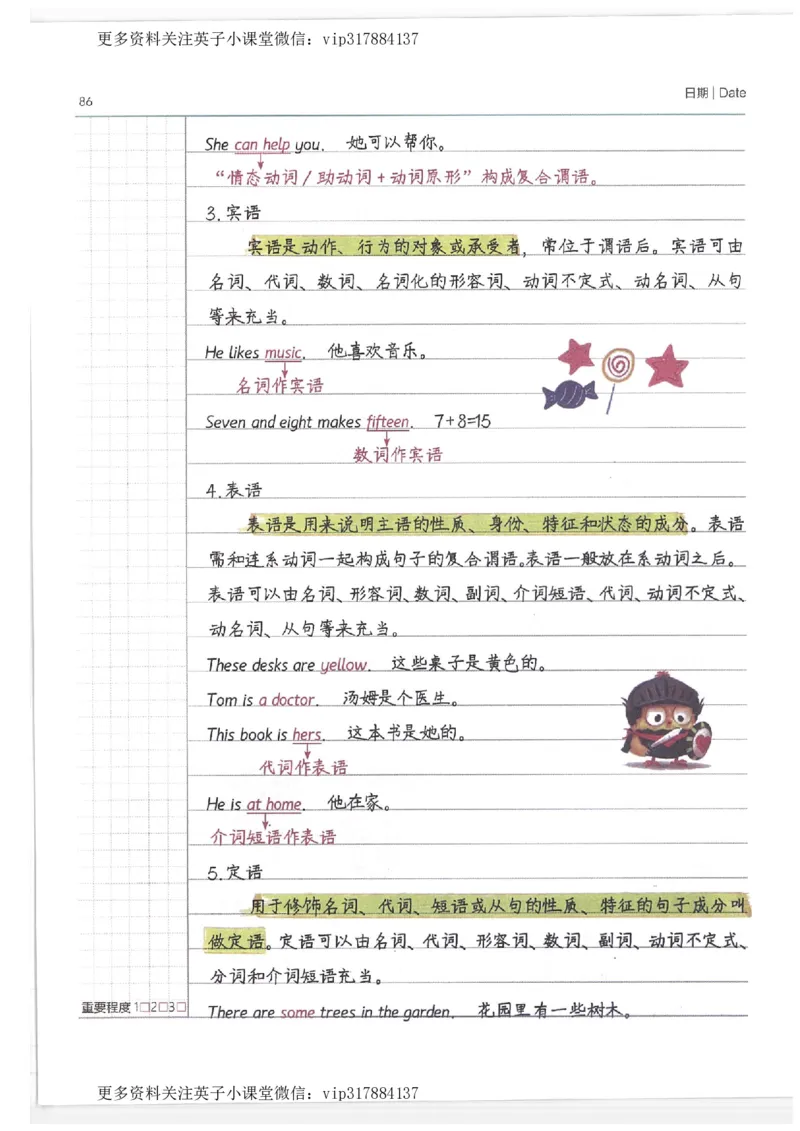 更多资料关注英子小课堂微信：vip317884137
86
日期 | Date
She can help you. 她可以帮你。
“情态动词/助动词+动词原形”构成复合谓语。
3.宾语
宾语是动作、行为的对象或承受者，常位于谓语后。宾语可由
名词、代词、数词、名词化的形容词、动词不定式、动名词、从句
等来充当。
He likes music. 他喜欢音乐。
名词作宾语
Seven and eight makes fifteen. 7+8=15
数词作宾语
4.表语
表语是用来说明主语的性质、身份、特征和状态的成分。表语
需和连系动词一起构成句子的复合谓语。表语一般放在系动词之后。
表语可以由名词、形容词、数词、副词、介词短语、代词、动词不定式、
动名词、从句等来充当。
These desks are yellow. 这些桌子是黄色的。
Tom is a doctor. 汤姆是个医生。
This book is hers. 这本书是她的。
代词作表语
He is at home. 他在家。
介词短语作表语
5.定语
用于修饰名词、代词、短语或从句的性质、特征的句子成分叫
做定语。定语可以由名词、代词、形容词、数词、副词、动词不定式、
分词和介词短语充当。
重要程度 1□2□3□
There are some trees in the garden. 花园里有一些树木。
更多资料关注英子小课堂微信：vip317884137